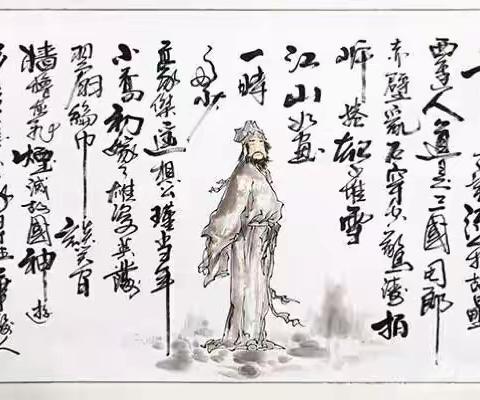 流
故壘
西邊人道是三國周郎
赤壁亂石穿空驚濤拍
岸捲起千堆雪
江山如畫
一時
多少
豪傑遙想公瑾當年
小喬初嫁了雄姿英發
羽扇綸巾談笑間
檣櫓灰飛煙滅故國神遊
生華髮人